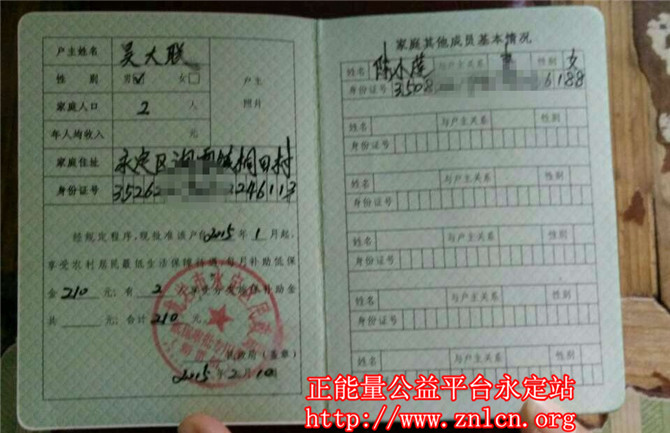 户主姓名 吴大联
性别 男☑ 女□ 户主
家庭人口 2 人 照片
年人均收入 元
家庭住址 永定区 桐田村
身份证号 35262 246113
经规定程序，现批准该户自2015年1月起，
享受农村居民最低生活保障待遇，每月补助低保
金210元；有2
共 元；合计210元。
民政局（盖章）
2015年2月10
家庭其他成员基本情况
姓名 陈 与户主关系 性别 女
身份证号 3508 6188
姓名 与户主关系 性别
身份证号
姓名 与户主关系 性别
身份证号
姓名 与户主关系 性别
身份证号
姓名 与户主关系 性别
身份证号
姓名 与户主关系 性别
身份证号
正能量公益平台永定站
http://www.znlcn.org